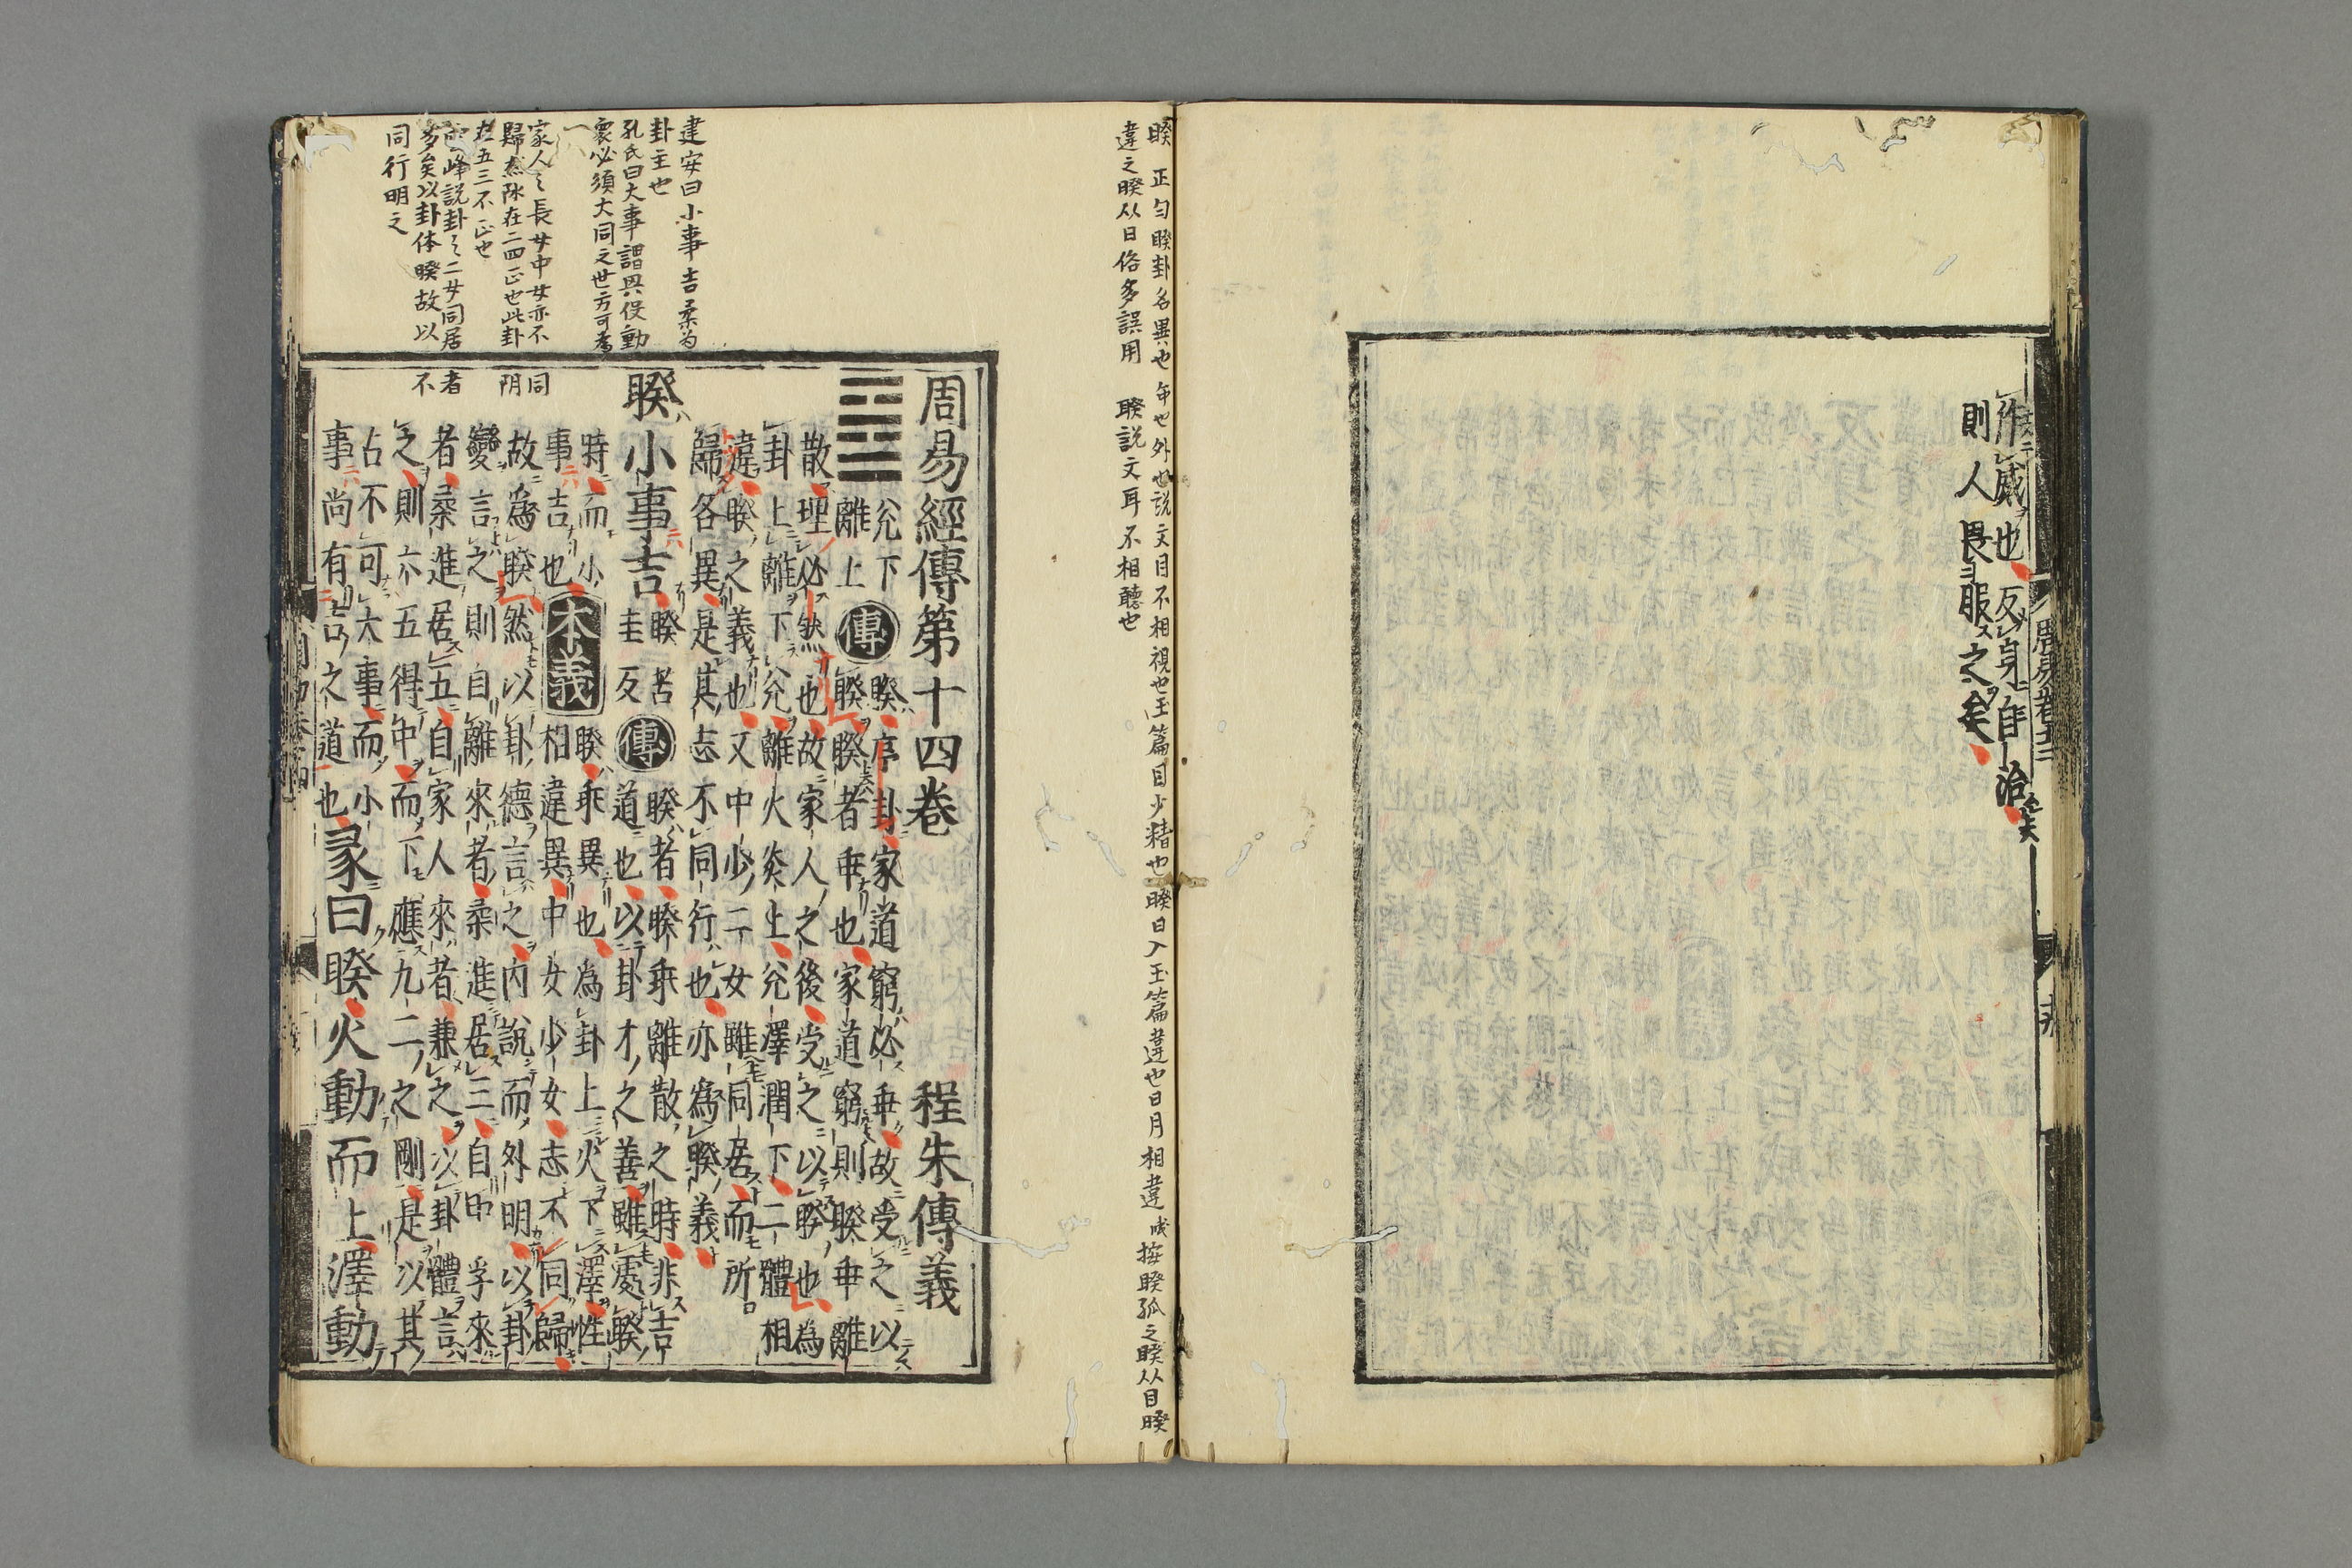 作威也反身自治
則人畏服之矣
睽 正匀睽卦名異也乖也外也説文目不相視也玉篇目少精也睽日入玉篇違也日月相違 按睽孤之睽从目睽
違之睽从日俗多誤用 聧説文耳不相聽也
周易經傳第十四卷 程朱傳義
兌下
離上
傳
睽序卦家道窮必乖故受之以
睽睽者乖也家道窮則睽乖離
散理必然也故家人之後受之以睽也為
卦上離下兌離火炎上兌澤潤下二體相
違睽之義也又中少二女雖同居而所
歸各異是其志不同行也亦為睽義
睽小事吉
睽苦
圭反
傳
睽者睽乖離散之時非吉
道也以卦才之善雖處睽
時而小
事吉也
本義
睽乖異也為卦上火下澤性
相違異中女少女志不同歸
故為睽然以卦德言之内說而外明以卦
變言之則自離來者柔進居三自中孚來
者柔進居五自家人來者兼之以卦體言
之則六五得中而下應九二之剛是以其
占不可大事而小
事尚有吉之道也
彖曰睽火動而上澤動
建安曰小事吉柔为
卦主也
孔氏曰大事謂興役動
衆必須大同之世方可為
家人之長女中女亦不同
歸然陰在二四正也此卦阴
在五三不正也
雲峰説卦之二女同居者
多矣以卦体睽故以不
同行明之